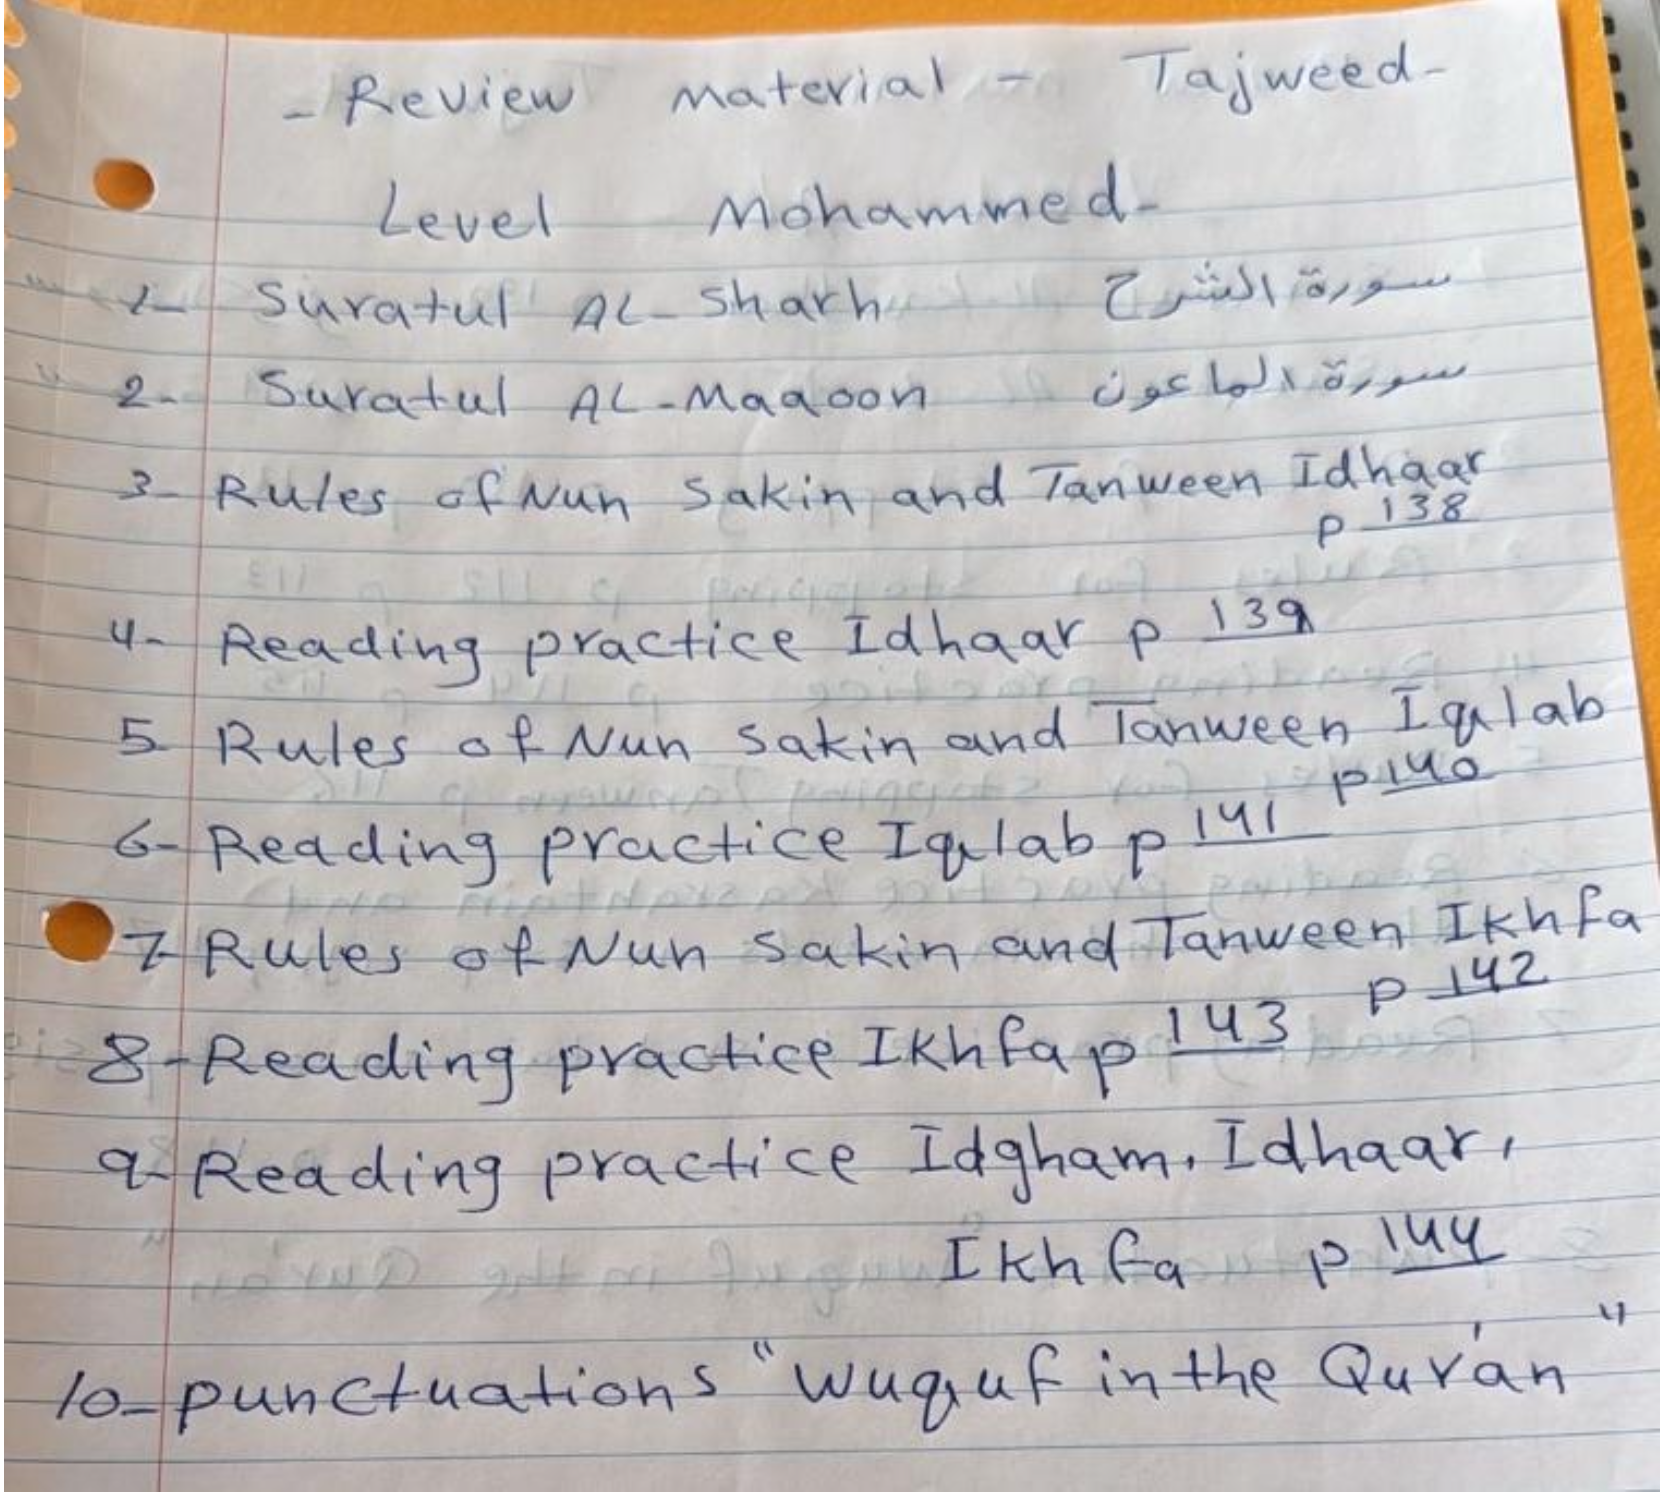 - Review material - Tajweed -
Level Mohammed -
1- Suratul AL-Sharh سورة الشرح
2- Suratul AL-Maaoon سورة الماعون
3- Rules of Nun Sakin and Tanween Idhaar
p 138
4- Reading practice Idhaar p 139
5 Rules of Nun Sakin and Tanween Iqlab
p 140
6- Reading practice Iqlab p 141
7- Rules of Nun Sakin and Tanween Ikhfa
p 142
8- Reading practice Ikhfa p 143
9- Reading practice Idgham, Idhaar,
Ikhfa p 144
10- punctuations "Wuquf in the Qur'an"